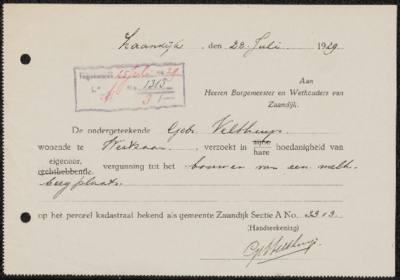 Zaandijk, den 22 Juli 1929
Aan
Heeren Burgemeester en Wethouders van
Zaandijk.
Ingekomen 25 Juli 1929
L. No. 1313
De ondergeteekende Gebr Velthuijs
woonende te verzoekt in zijne hare hoedanigheid van
eigenaar, rechthebbende, vergunning tot het bouwen van een melk
bergplaats.
op het perceel kadastraal bekend als gemeente Zaandijk Sectie A No. 3313.
(Handteekening)